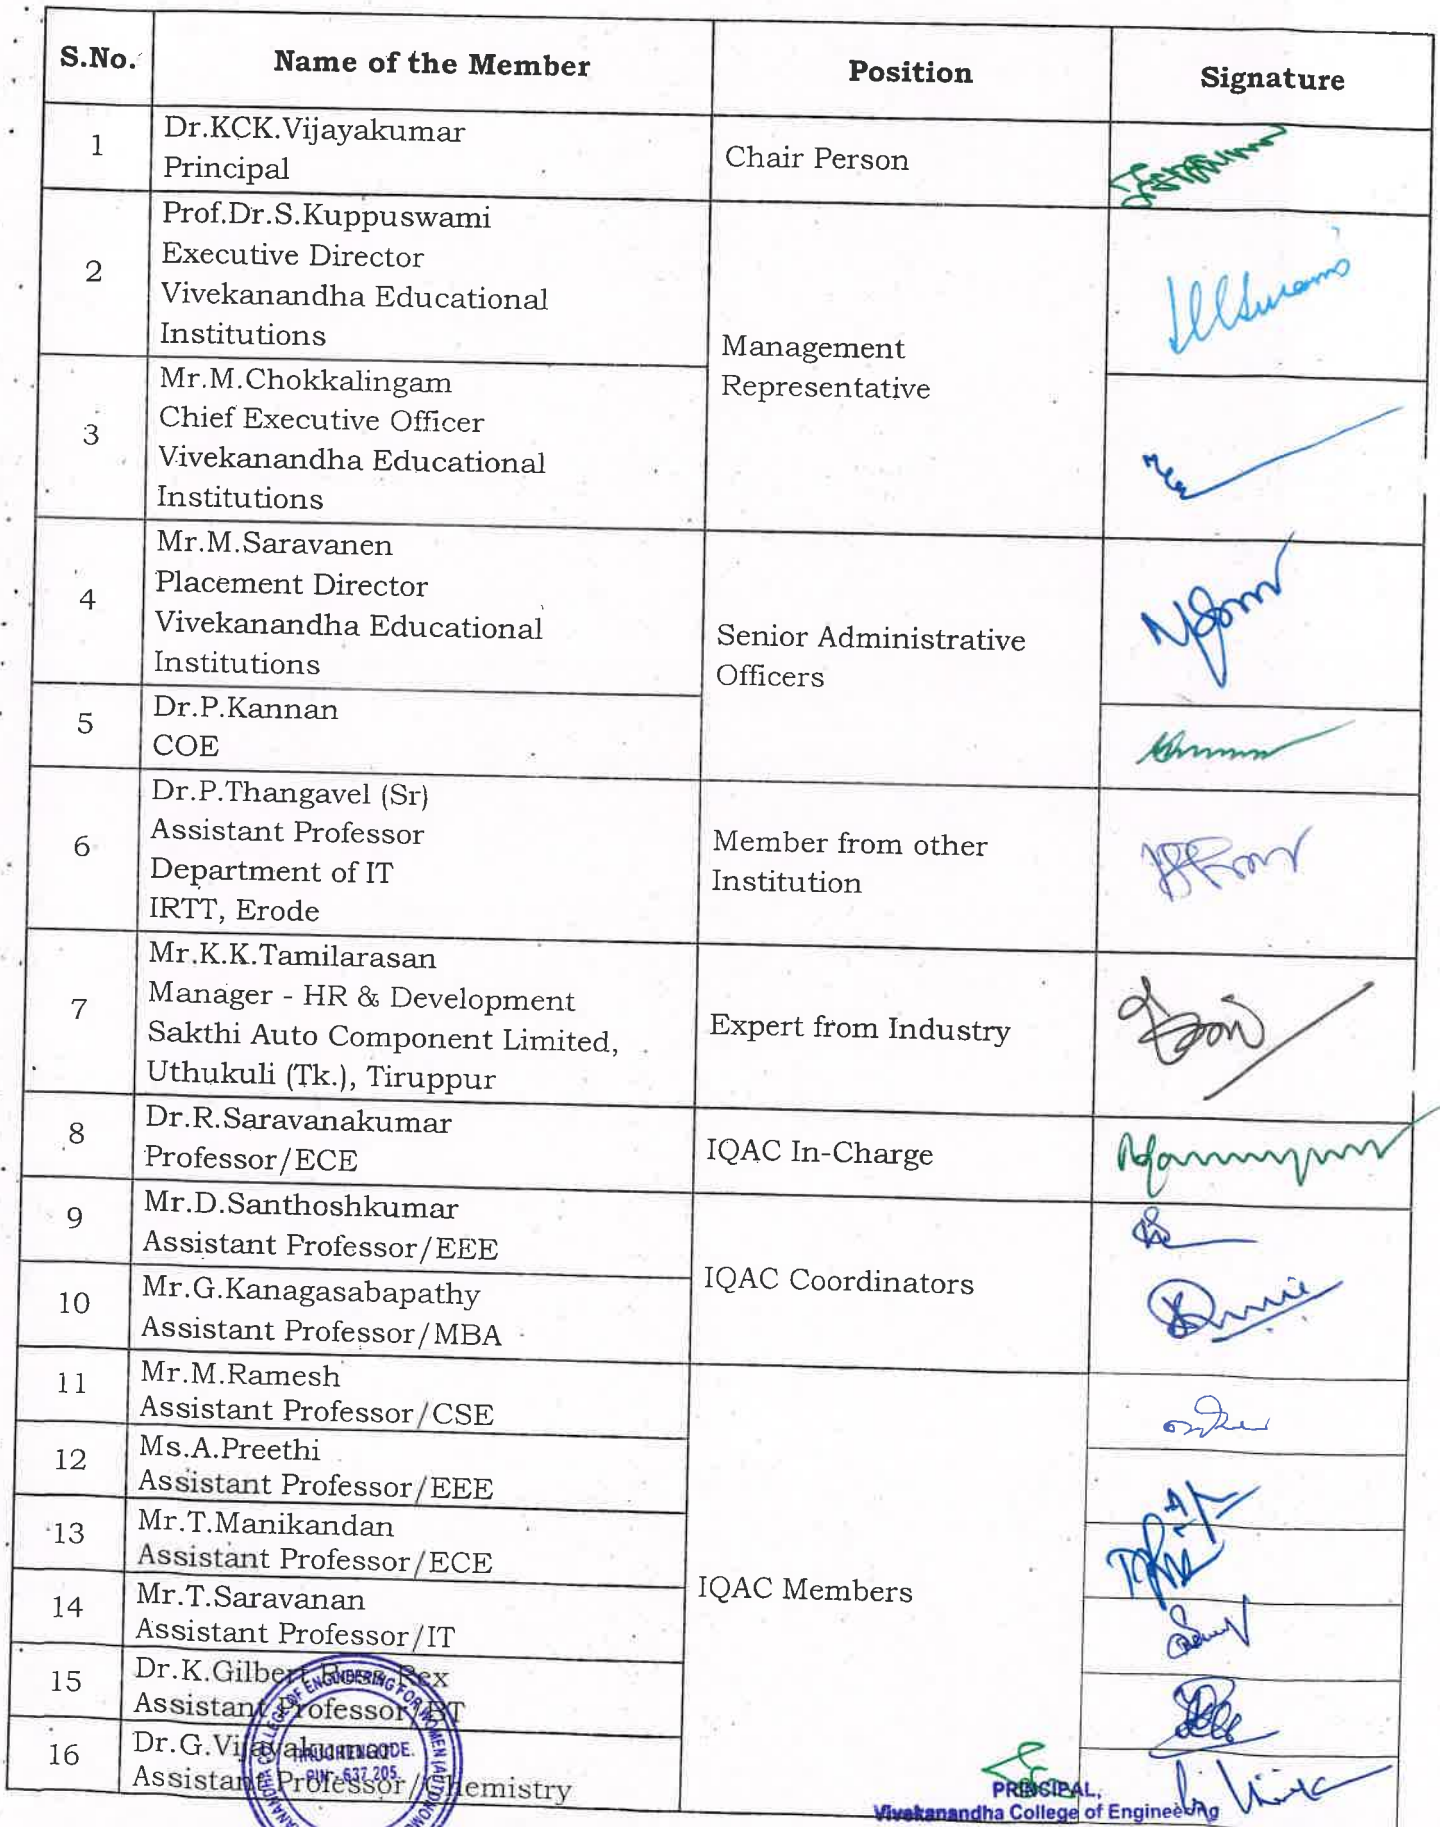 S.No. Name of the Member Position Signature
1
Dr.KCK.Vijayakumar
Principal
Chair Person
2
Prof.Dr.S.Kuppuswami
Executive Director
Vivekanandha Educational
Institutions
Management
Representative
3
Mr.M.Chokkalingam
Chief Executive Officer
Vivekanandha Educational
Institutions
4
Mr.M.Saravanen
Placement Director
Vivekanandha Educational
Institutions
Senior Administrative
Officers
5
Dr.P.Kannan
COE
6
Dr.P.Thangavel (Sr)
Assistant Professor
Department of IT
IRTT, Erode
Member from other
Institution
7
Mr.K.K.Tamilarasan
Manager - HR & Development
Sakthi Auto Component Limited,
Uthukuli (Tk.), Tiruppur
Expert from Industry
8
Dr.R.Saravanakumar
Professor/ECE
IQAC In-Charge
9
Mr.D.Santhoshkumar
Assistant Professor/EEE
IQAC Coordinators
10
Mr.G.Kanagasabapathy
Assistant Professor/MBA
11
Mr.M.Ramesh
Assistant Professor/CSE
12
Ms.A.Preethi
Assistant Professor/EEE
13
Mr.T.Manikandan
Assistant Professor/ECE
IQAC Members
14
Mr.T.Saravanan
Assistant Professor/IT
15
Dr.K.Gilbert Ross Rex
Assistant Professor/BT
16
Dr.G.Vijayakumar
Assistant Professor/Chemistry
COLLEGE OF ENGINEERING FOR WOMEN
TIRUCHENGODE.
PIN - 637 205.
PRINCIPAL,
Vivekanandha College of Engineering